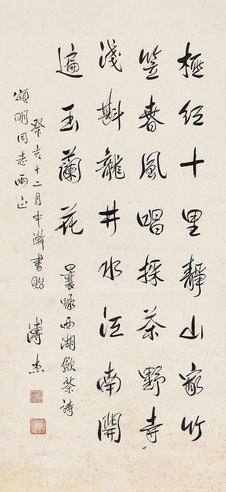 徑十里靜山家竹
笠春風唱採茶野寺
淺斟龍井水江南開
遍玉蘭花 曩咏西湖飲茶詩
癸亥十二月中澣書貽
頌明同志兩正
溥杰